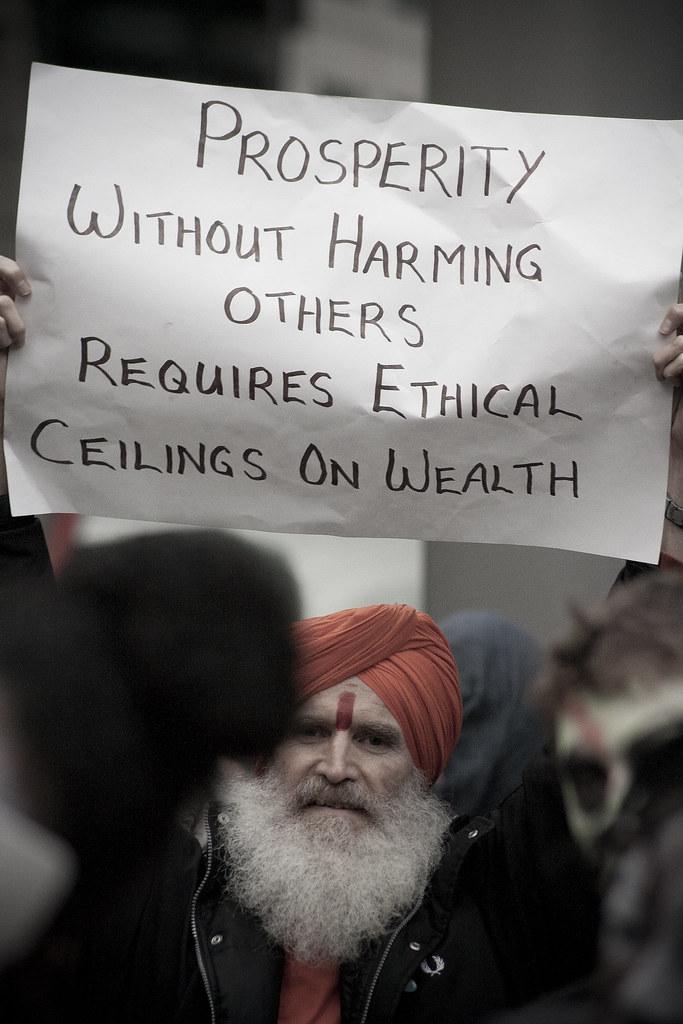 PROSPERITY
WITHOUT HARMING
OTHERS
REQUIRES ETHICAL
CEILINGS ON WEALTH